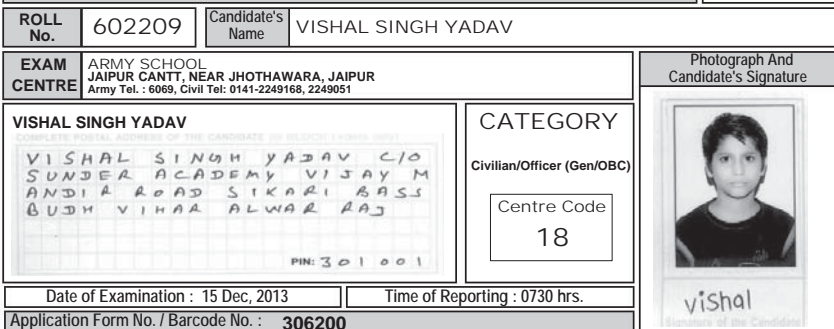 ROLL No. 602209 Candidate's Name VISHAL SINGH YADAV
EXAM CENTRE
ARMY SCHOOL
JAIPUR CANTT, NEAR JHOTHAWARA, JAIPUR
Army Tel. : 6069, Civil Tel: 0141-2249168, 2249051
Photograph And
Candidate's Signature
VISHAL SINGH YADAV
COMPLETE POSTAL ADDRESS OF THE CANDIDATE
VISHAL SINGH YADAV C/O
SUNDER ACADEMY VIJAY M
ANDIR ROAD SIKARI BASS
BUDH VIHAR ALWAR RAJ
PIN: 301001
CATEGORY
Civilian/Officer (Gen/OBC)
Centre Code
18
vishal
Signature of the Candidate
Date of Examination : 15 Dec, 2013 Time of Reporting : 0730 hrs.
Application Form No. / Barcode No. : 306200